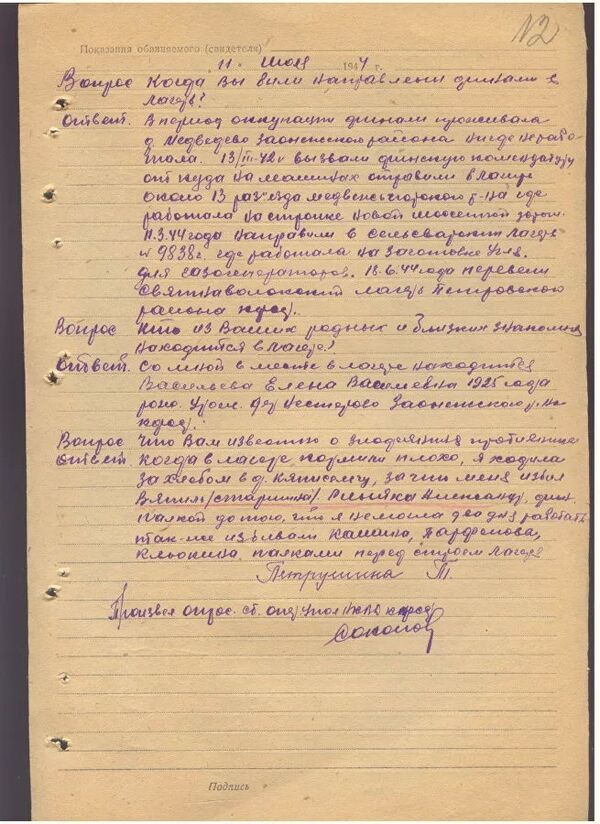 N2
Показания обвиняемого (свидетеля)
11. июля 1944 г.
Вопрос Когда Вы были направлены финнами в
лагерь?
Ответ. В период оккупации финнами проживала
д Медведево Заонежского района нигде не рабо-
тала. 13/III-42г вызвали финскую комендатуру
от куда на машинах отправили в лагерь
около 13 разъезда Медвежьегорского р-на где
работала на стройке новой шоссейной дороги.
11.3.44 года направили в лагерь
№ 9838 г. где работала на заготовке угля.
для газогенераторов. 18.6.44 года перевели
Святнаволокский лагерь Петровского
района кфсср.
Вопрос Кто из Ваших родных и близких знакомых
находится в лагере?
Ответ. Со мной в месте в лагере находится
Васильева Елена Васильевна 1925 года
рожд. Урож. дер Нестерово Заонежского р-на
кфсср.
Вопрос Что Вам известно о злодеяния противника
Ответ. Когда в лагере кормили плохо, я ходила
за хлебом в д. за что меня избил
/старшина/ фин.
палкой до того, что я не могла два дня работать
так-же избивали Парфенова,
палками перед строем лагеря
Петрушина Т.
Произвел опрос. ст. опер НКГБ кфсср
Соколов
Подпись